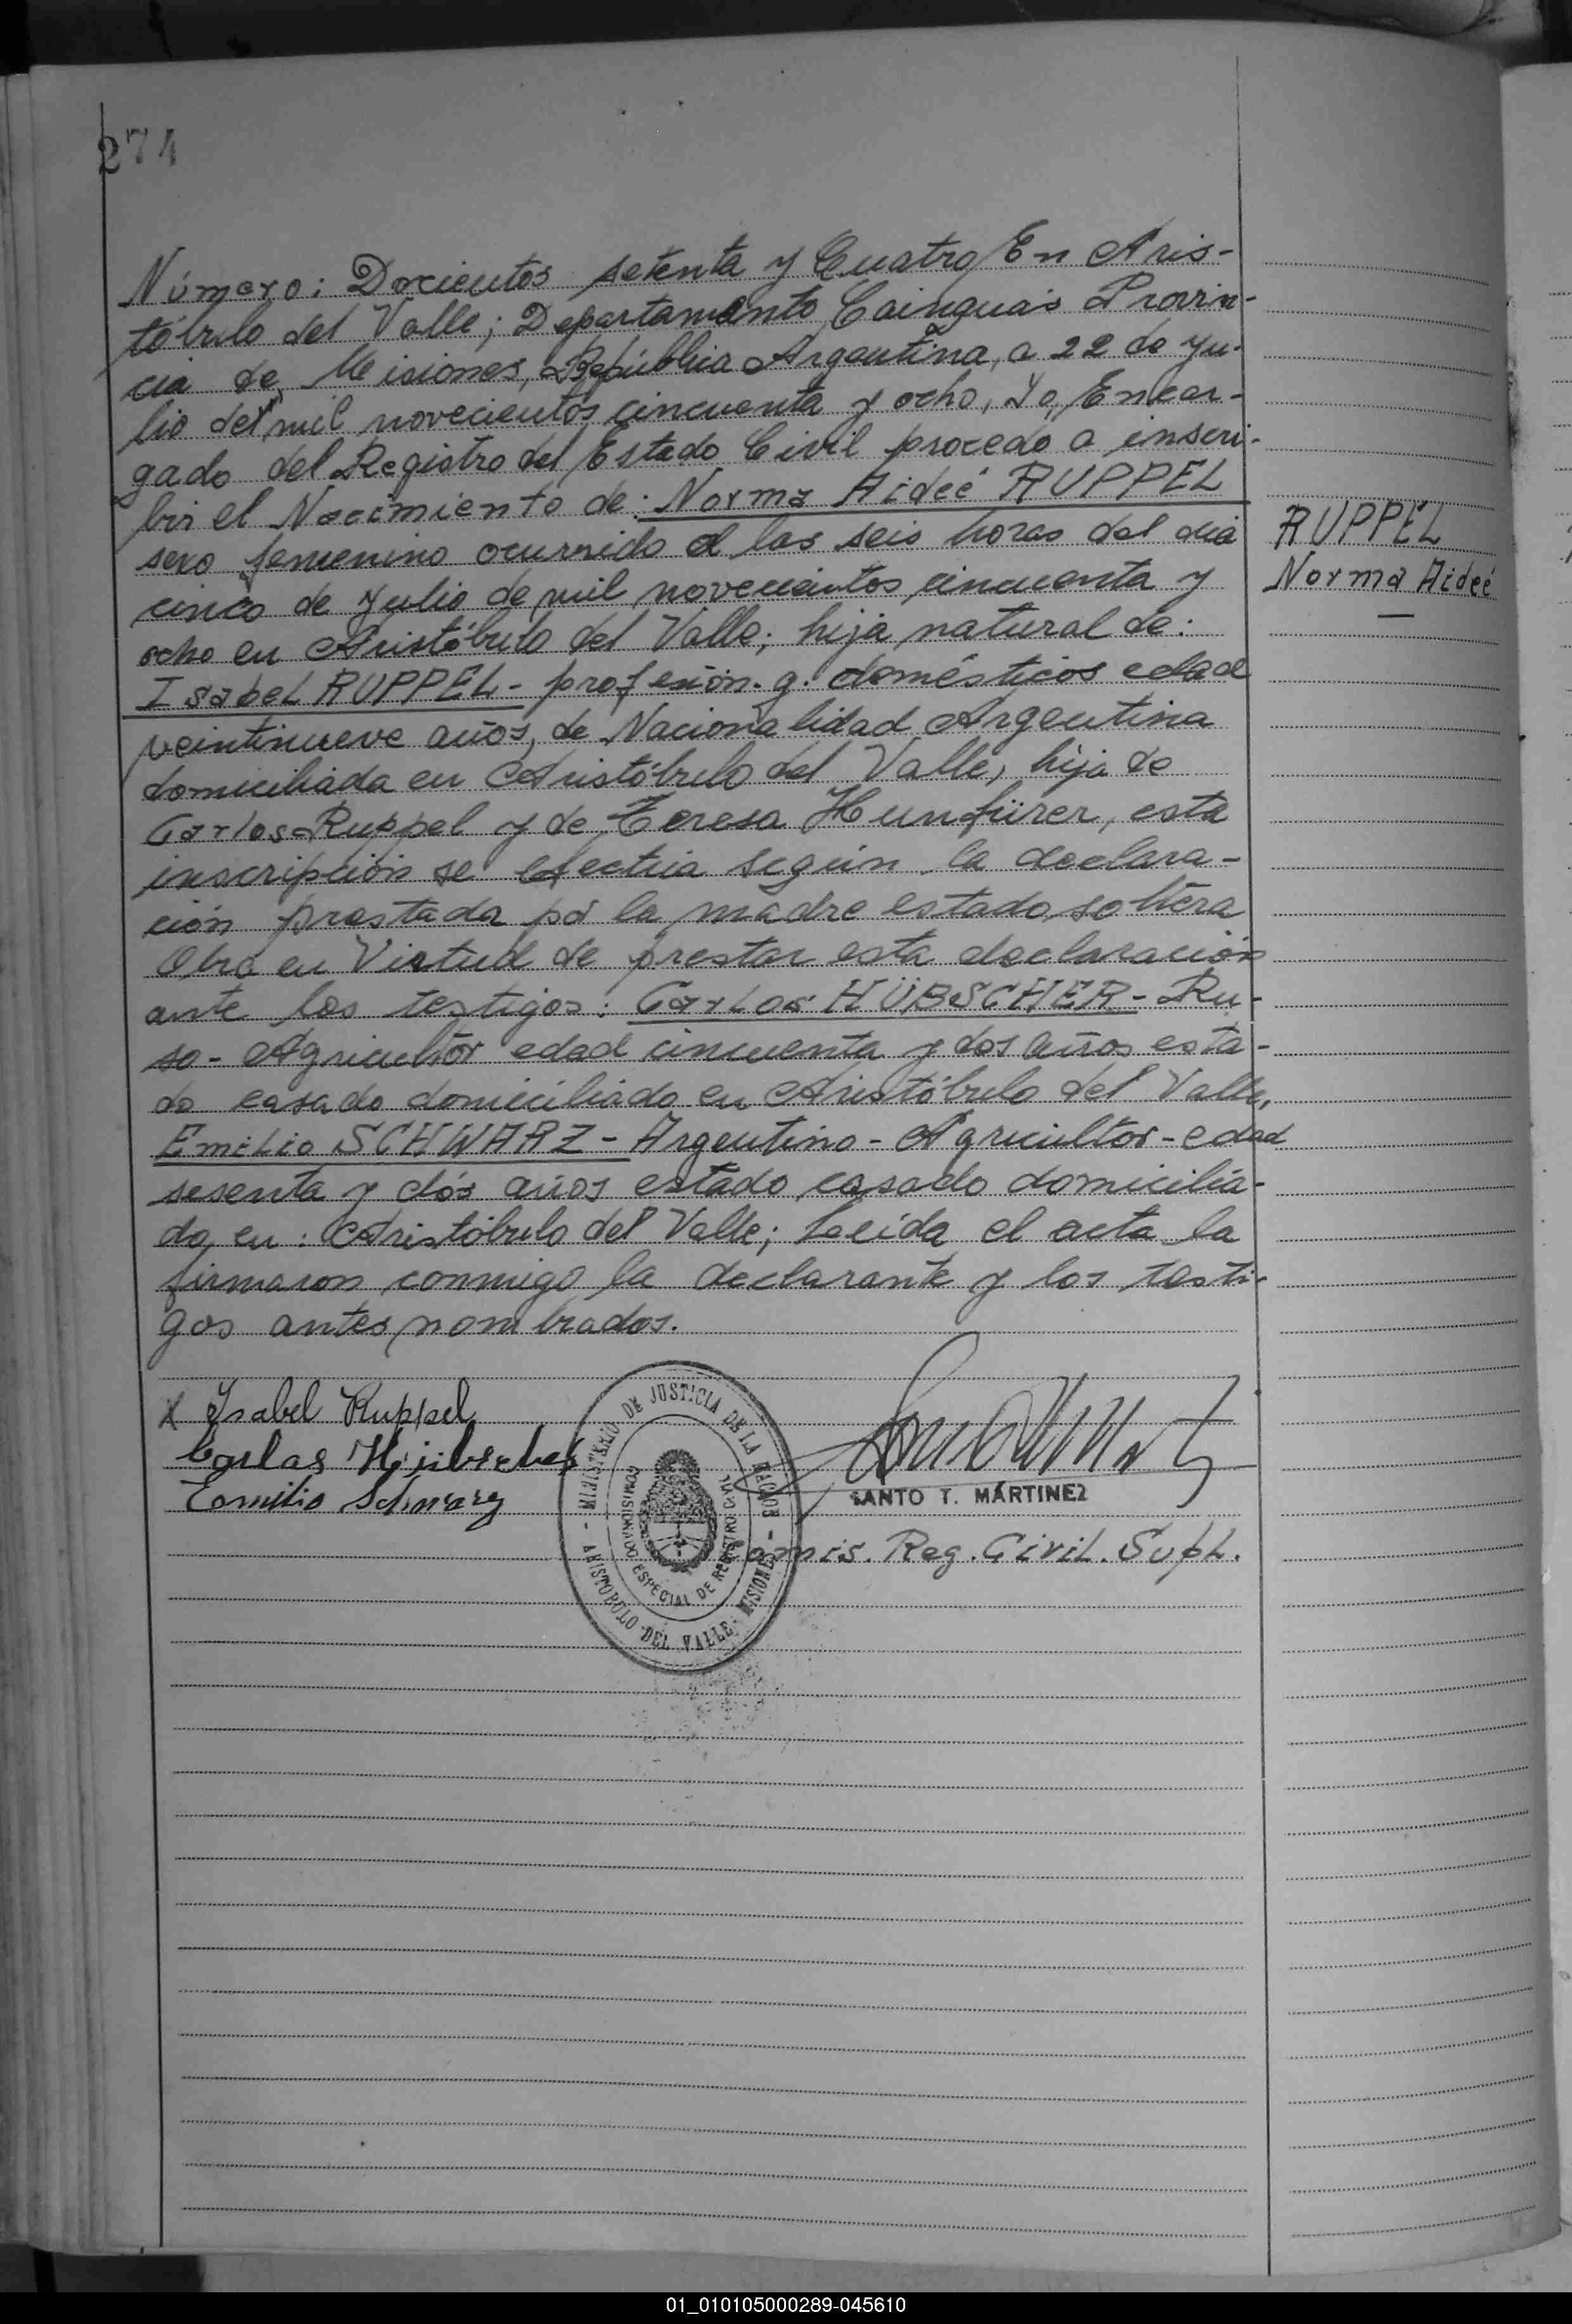 274
Número: Docientos setenta y Cuatro En Aris-
tóbulo del Valle; Departamento Cainguás Provin-
cia de Misiones, República Argentina, a 22 de Ju-
lio del mil novecientos cincuenta y ocho, Yo, Encar-
gado del Registro del Estado Civil procedo a inscri-
bir el Nacimiento de: Norma Aideé RUPPEL
sexo femenino ocurrido a las seis horas del día
cinco de Julio de mil novecientos cincuenta y
ocho en Aristóbulo del Valle; hija natural de:
Isabel RUPPEL - profesión q. domésticos edad
veintinueve años, de Nacionalidad Argentina
domiciliada en Aristóbulo del Valle, hija de
Carlos Ruppel y de Teresa Hunfürer, esta
inscripción se efectúa según la declara-
ción prestada por la madre estado soltera
Obra en Virtud de prestar esta declaración
ante los testigos: Carlos HÜBSCHER - Ru-
so - Agricultor edad cincuenta y dos años esta-
do casado domiciliado en Aristóbulo del Valle,
Emilio SCHWARZ - Argentino - Agricultor - edad
sesenta y dós años estado casado domicilia-
do, en: Aristóbulo del Valle; Leída el acta la
firmaron conmigo la declarante y los testi-
gos antes nombrados.
RUPPEL
Norma Aideé
x Isabel Ruppel
Carlos Hübscher
Emilio Schwarz
MINISTERIO DE JUSTICIA DE LA NACION
COMISIONADO ESPECIAL DE REGISTRO CIVIL
- ARISTOBULO DEL VALLE - MISIONES -
SANTO T. MARTINEZ
omis. Reg. Civil. Supl.
01_010105000289-045610